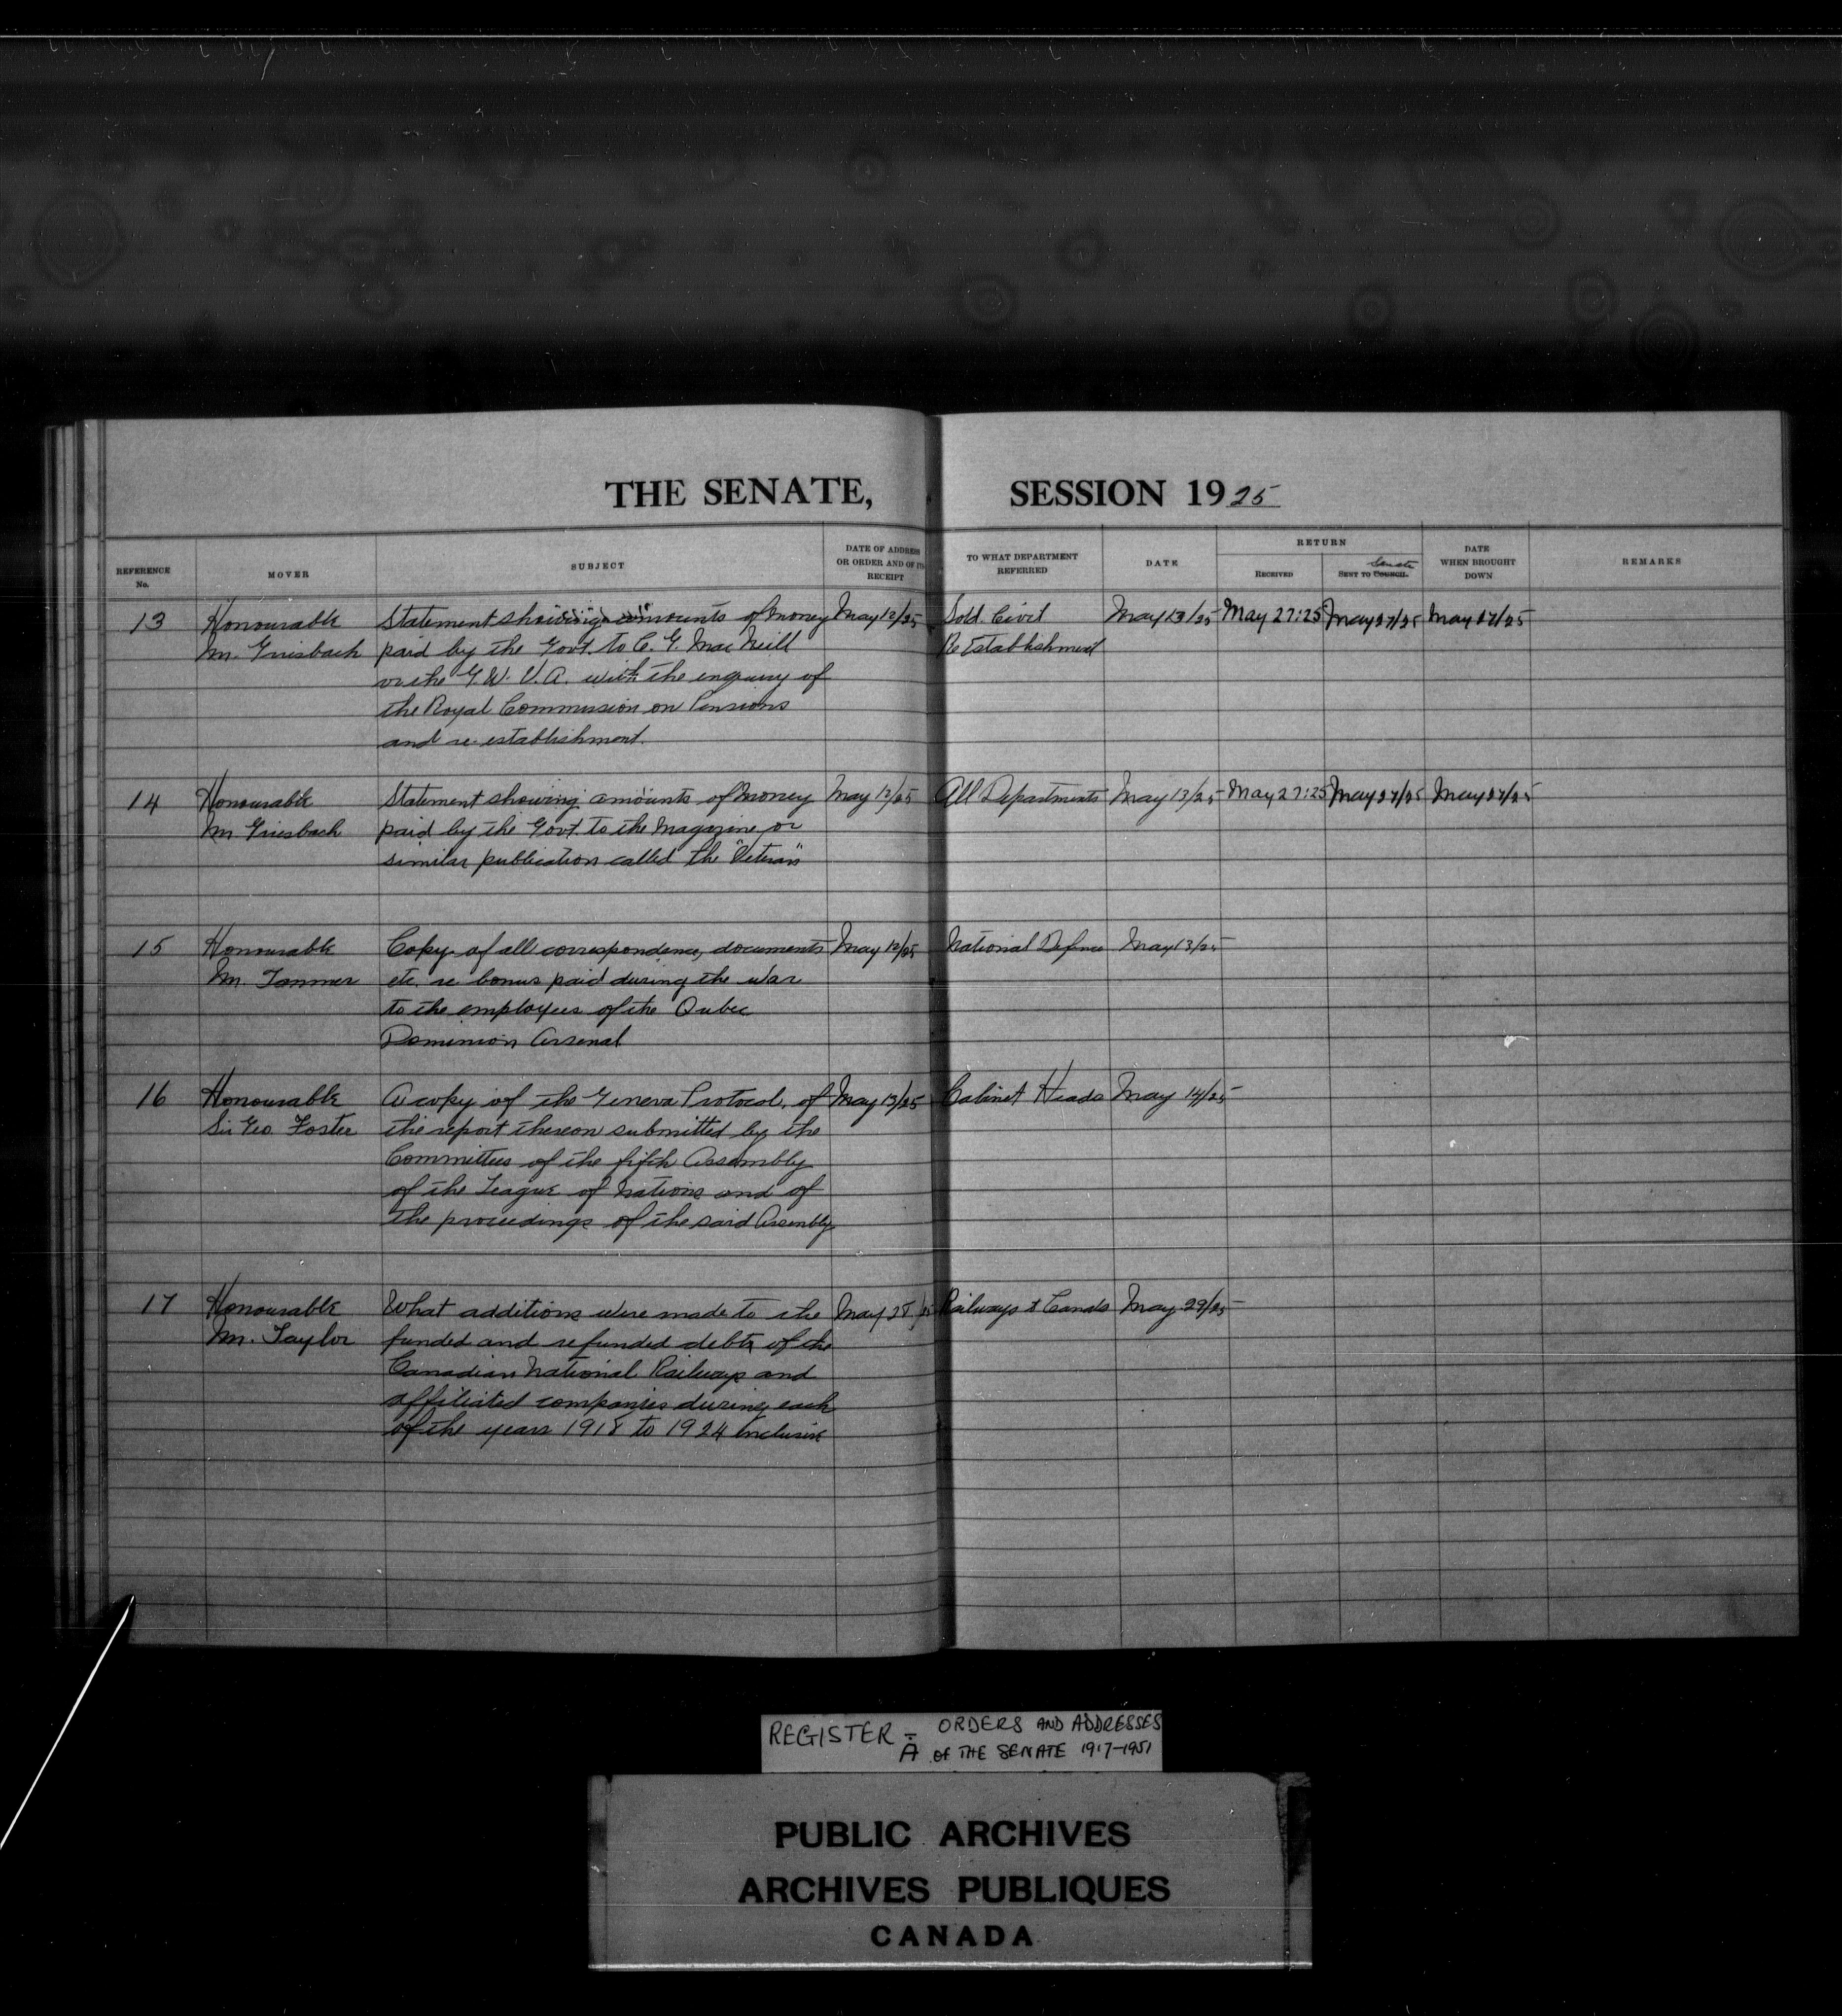 THE SENATE, SESSION 1925
REFERENCE No. MOVER SUBJECT DATE OF ADDRESS OR ORDER AND OF ITS RECEIPT TO WHAT DEPARTMENT REFERRED DATE RETURN RECEIVED SENT TO COUNCIL Senate DATE WHEN BROUGHT DOWN REMARKS
13 Honourable Statement showing amounts of money May 12/25 Sold. Civil May 13/25 May 27:25 May 27/25 May 27/25
Mr. Griesbach paid by the Govt. to C. G. MacNeill Re Establishment
or the G.W.V.A. with the enquiry of
the Royal Commission on Pensions
and re-establishment.
14 Honourable Statement showing amounts of money May 12/25 All Departments May 13/25 May 27:25 May 27/25 May 27/25
Mr Griesbach paid by the Govt. to the Magazine or
similar publication called the "Veteran"
15 Honourable Copy of all correspondence, documents May 12/25 National Defence May 13/25
Mr. Tanner etc. re bonus paid during the war
to the employees of the Qubec
Dominion Arsenal
16 Honourable A copy of the Geneva Protocol, of May 13/25 Cabinet Heads May 14/25
Sir Geo. Foster the report thereon submitted by the
Committees of the fifth Assembly
of the League of Nations and of
the proceedings of the said Assembly
17 Honourable What additions were made to the May 28/25 Railways & Canals May 29/25
Mr. Taylor funded and refunded debts of the
Canadian National Railways and
affiliated companies during each
of the years 1918 to 1924 inclusive
REGISTER - A ORDERS AND ADDRESSES
OF THE SENATE 1917-1951
PUBLIC ARCHIVES
ARCHIVES PUBLIQUES
CANADA